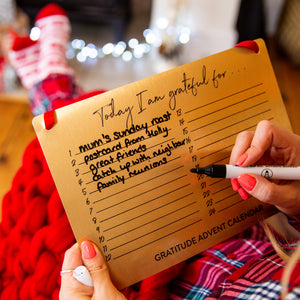 Today I am grateful for . . .
1 mum's Sunday roast
2 postcard from Molly
3 great friends
4 catch up with neighbour
5 family reunions
6
7
8
9
10
11
12
13
14
15
16
17
18
19
20
21
22
23
24
GRATITUDE ADVENT CALENDAR